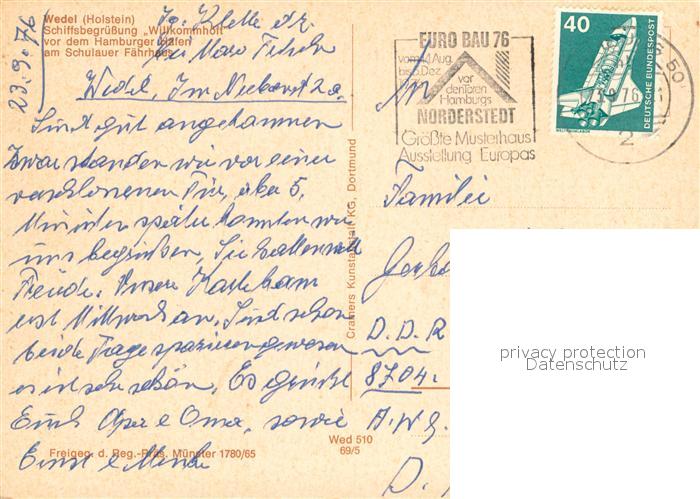 23.9.76
Wedel (Holstein)
Schiffsbegrüßung „Willkommhöft"
vor dem Hamburger Hafen
am Schulauer Fährhaus
Wedel, Im
Sind gut angekommen
Zwar standen wir vor einer
verschlossenen Tür, aber 5
Minuten später konnten wir
uns begrüßen, Sie hatten
Freude. Unsere Karte kam
erst Mittwoch an. Sind schon
beide Tage spazieren gewesen
es ist sehr schön, Es grüßt
Euch Opa & Oma, sowie
Ernst &
Freigeg. d. Reg.-Präs. Münster 1780/65
Wed 510
69/5
Cramers Kunstanstalt KG, Dortmund
EURO BAU 76
vom 14. Aug.
bis 5. Dez.
vor
den Toren
Hamburgs
NORDERSTEDT
Größte Musterhaus
Ausstellung Europas
40
DEUTSCHE BUNDESPOST
2
An
Familie
D.D.R
8704.
A.W.G.
D.
privacy protection
Datenschutz